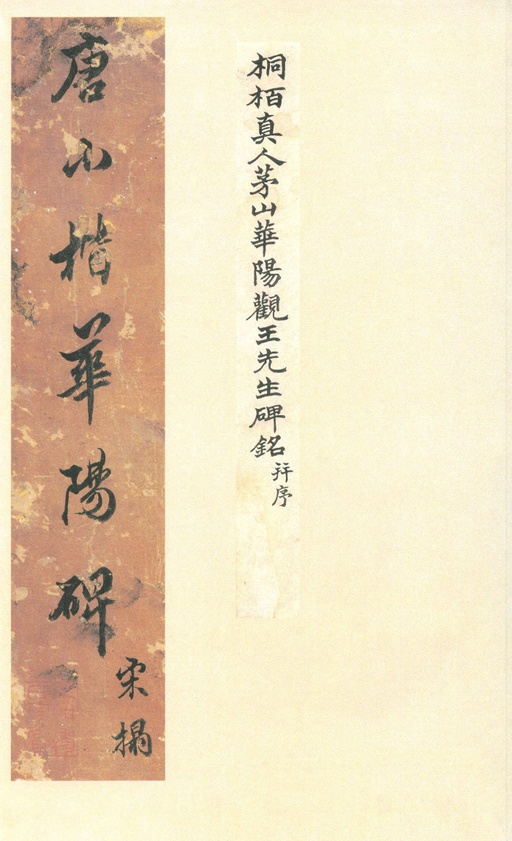 桐柏真人茅山華陽觀王先生碑銘并序
唐小楷華陽碑
宋搨